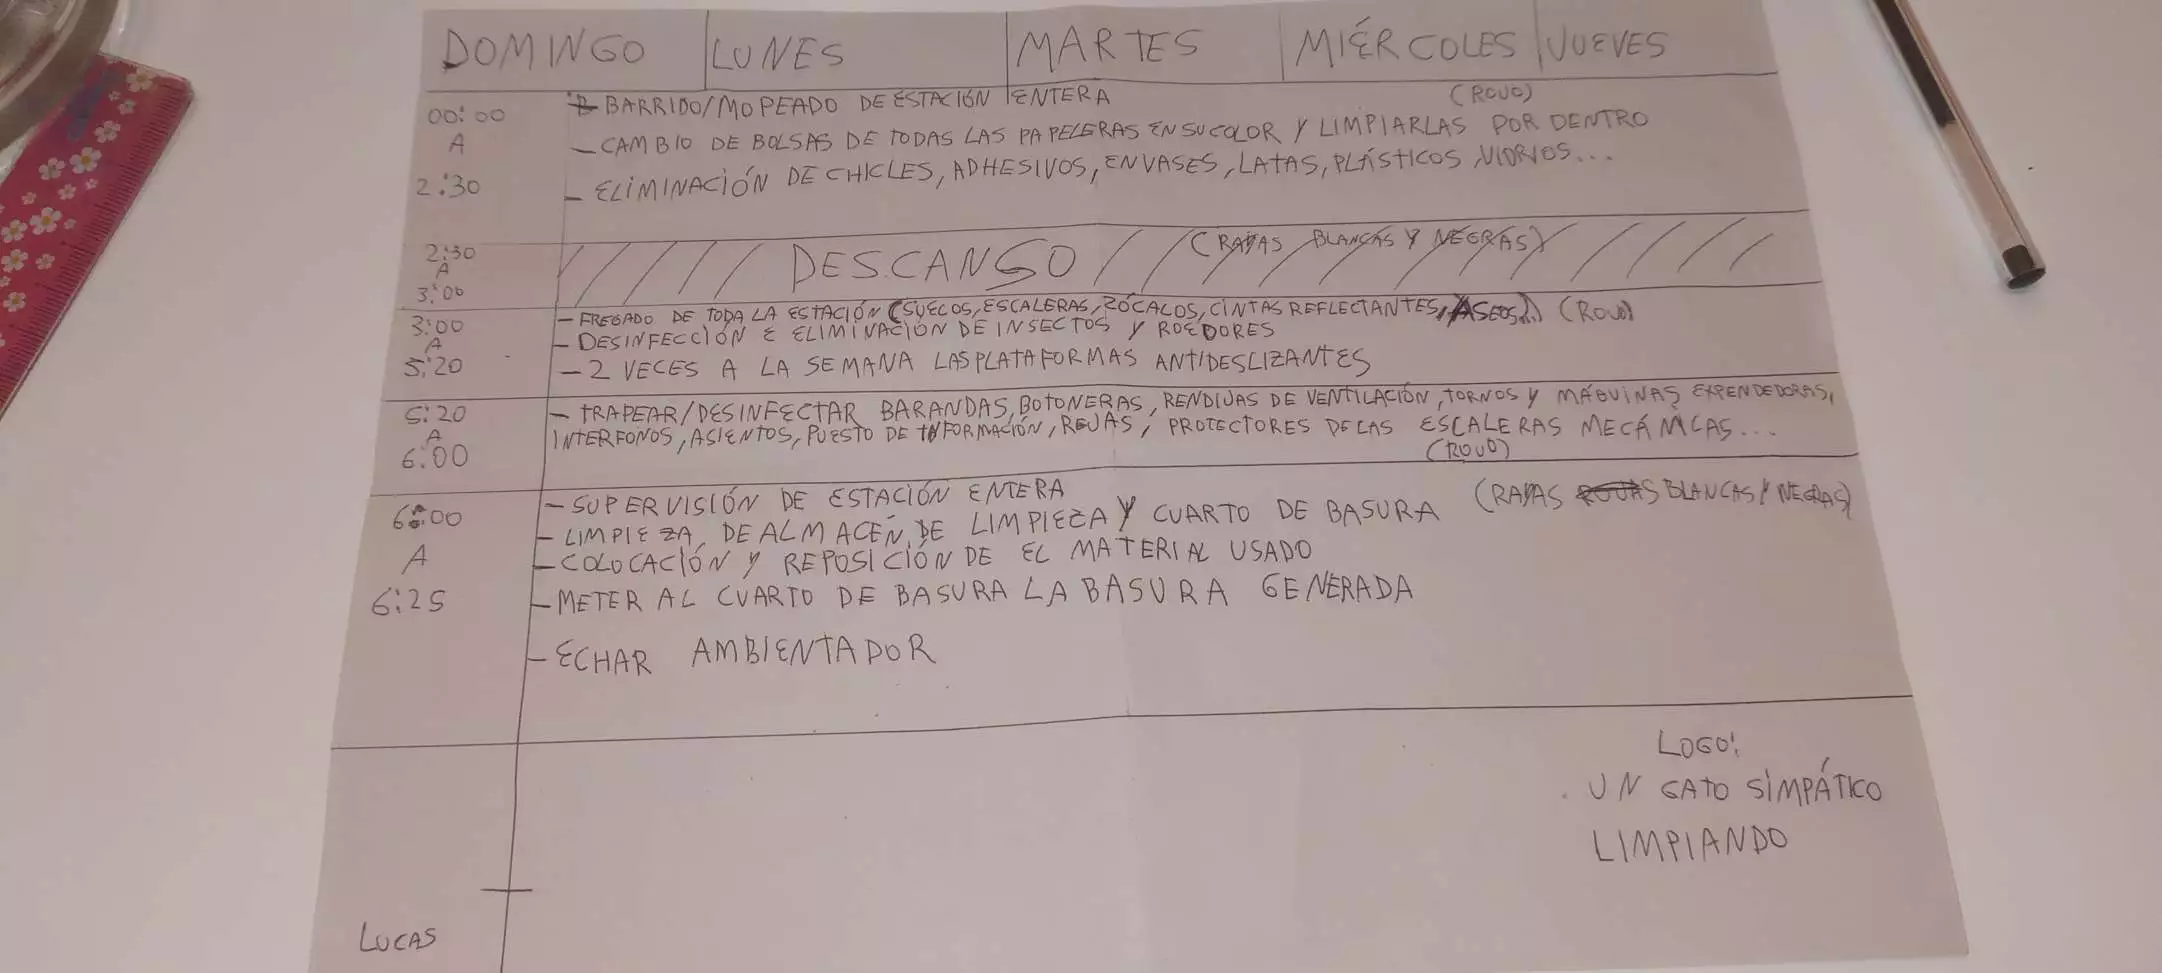 DOMINGO LUNES MARTES MIÉRCOLES JUEVES
00:00 A 2:30
- BARRIDO/MOPEADO DE ESTACIÓN ENTERA (ROJO)
- CAMBIO DE BOLSAS DE TODAS LAS PAPELERAS EN SU COLOR Y LIMPIARLAS POR DENTRO
- ELIMINACIÓN DE CHICLES, ADHESIVOS, ENVASES, LATAS, PLÁSTICOS, VIDRIOS...
2:30 A 3:00
DESCANSO (RAYAS BLANCAS Y NEGRAS)
3:00 A 5:20
- FREGADO DE TODA LA ESTACIÓN (SUELOS, ESCALERAS, ZÓCALOS, CINTAS REFLECTANTES, ASEOS...) (ROJO)
- DESINFECCIÓN E ELIMINACIÓN DE INSECTOS Y ROEDORES
- 2 VECES A LA SEMANA LAS PLATAFORMAS ANTIDESLIZANTES
5:20 A 6:00
- TRAPEAR/DESINFECTAR BARANDAS, BOTONERAS, RENDIJAS DE VENTILACIÓN, TORNOS Y MÁQUINAS EXPENDEDORAS,
INTERFONOS, ASIENTOS, PUESTO DE INFORMACIÓN, REJAS, PROTECTORES DE LAS ESCALERAS MECÁNICAS...
(ROJO)
6:00 A 6:25
- SUPERVISIÓN DE ESTACIÓN ENTERA (RAYAS BLANCAS Y NEGRAS)
- LIMPIEZA DE ALMACÉN DE LIMPIEZA Y CUARTO DE BASURA
- COLOCACIÓN Y REPOSICIÓN DE EL MATERIAL USADO
- METER AL CUARTO DE BASURA LA BASURA GENERADA
- ECHAR AMBIENTADOR
LOGO:
UN GATO SIMPÁTICO
LIMPIANDO
LUCAS